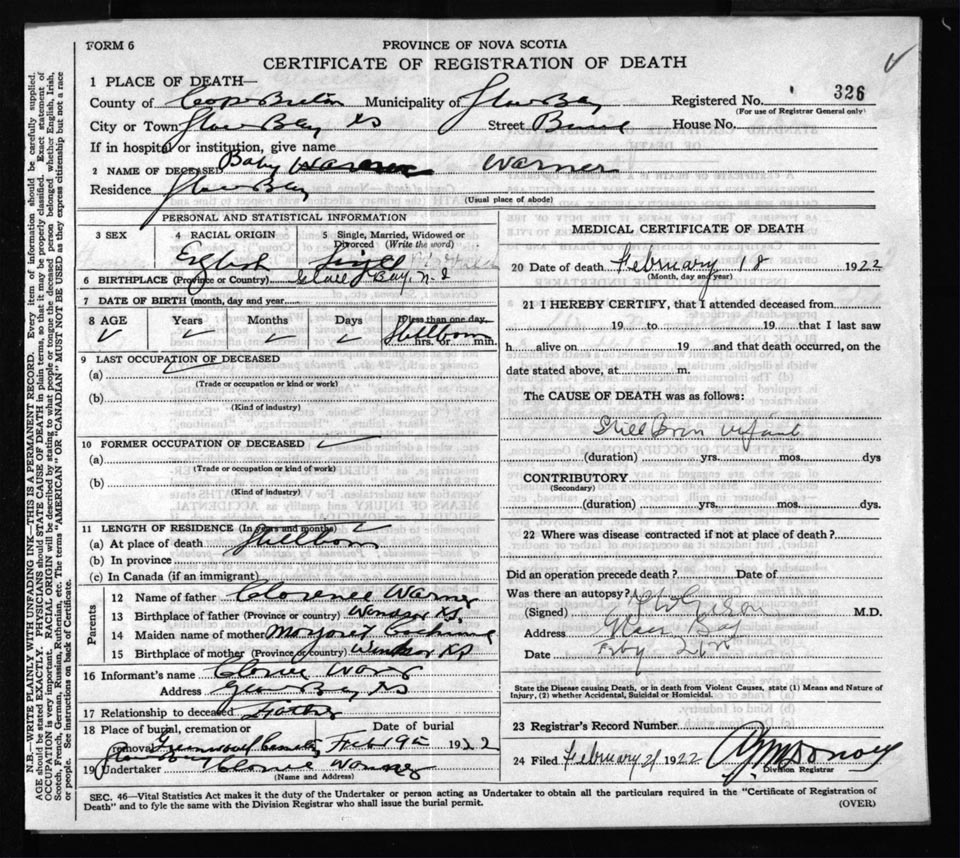 FORM 6
PROVINCE OF NOVA SCOTIA
CERTIFICATE OF REGISTRATION OF DEATH
1 PLACE OF DEATH—
County of Cape Breton Municipality of Glace Bay Registered No. 326
(For use of Registrar General only)
City or Town Glace Bay NS Street House No.
If in hospital or institution, give name
2 NAME OF DECEASED Baby Warner
Residence Glace Bay
(Usual place of abode)
PERSONAL AND STATISTICAL INFORMATION
3 SEX
4 RACIAL ORIGIN
English
5 Single, Married, Widowed or Divorced (Write the word)
Single
6 BIRTHPLACE (Province or Country) Glace Bay, N.S
7 DATE OF BIRTH (month, day and year)
8 AGE Years Months Days If less than one day
Stillborn
hrs. or min.
9 LAST OCCUPATION OF DECEASED
(a)
(Trade or occupation or kind or work)
(b)
(Kind of industry)
10 FORMER OCCUPATION OF DECEASED
(a)
(Trade or occupation or kind or work)
(b)
(Kind of industry)
11 LENGTH OF RESIDENCE (In years and months)
(a) At place of death Stillborn
(b) In province
(c) In Canada (if an immigrant)
Parents
12 Name of father Clarence Warner
13 Birthplace of father (Province or country) Windsor NS.
14 Maiden name of mother Margaret
15 Birthplace of mother (Province or country) Windsor NS
16 Informant's name
Address Glace Bay NS
17 Relationship to deceased Father
18 Place of burial, cremation or removal Greenwood Cemetery Glace Bay
Date of burial Feb 19th 1922
19 Undertaker
(Name and Address)
MEDICAL CERTIFICATE OF DEATH
20 Date of death February 18 1922
(Month, day and year)
21 I HEREBY CERTIFY, that I attended deceased from
19 to 19 that I last saw
h alive on 19 and that death occurred, on the
date stated above, at m.
The CAUSE OF DEATH was as follows:
Still Born infant
(duration) yrs. mos. dys
CONTRIBUTORY
(Secondary)
(duration) yrs. mos. dys.
22 Where was disease contracted if not at place of death?
Did an operation precede death? Date of
Was there an autopsy?
(Signed) M.D.
Address Glace Bay
Date
State the Disease causing Death, or in death from Violent Causes, state (1) Means and Nature of Injury, (2) whether Accidental, Suicidal or Homicidal.
23 Registrar's Record Number
24 Filed February 21 1922
Division Registrar
SEC. 46—Vital Statistics Act makes it the duty of the Undertaker or person acting as Undertaker to obtain all the particulars required in the "Certificate of Registration of
Death" and to fyle the same with the Division Registrar who shall issue the burial permit.
(OVER)
N.B.—WRITE PLAINLY WITH UNFADING INK—THIS IS A PERMANENT RECORD. Every item of information should be carefully supplied.
AGE should be stated EXACTLY. PHYSICIANS should STATE CAUSE OF DEATH in plain terms, so that it may be properly classified. Exact statement of
OCCUPATION is very important. RACIAL ORIGIN will be described by stating to what people or tongue the deceased person belonged whether English, Irish,
Scotch, French, German, Russian, Ruthenian, etc. The terms "AMERICAN" OR "CANADIAN" MUST NOT BE USED as they express citizenship but not a race
or people. See instructions on back of Certificate.